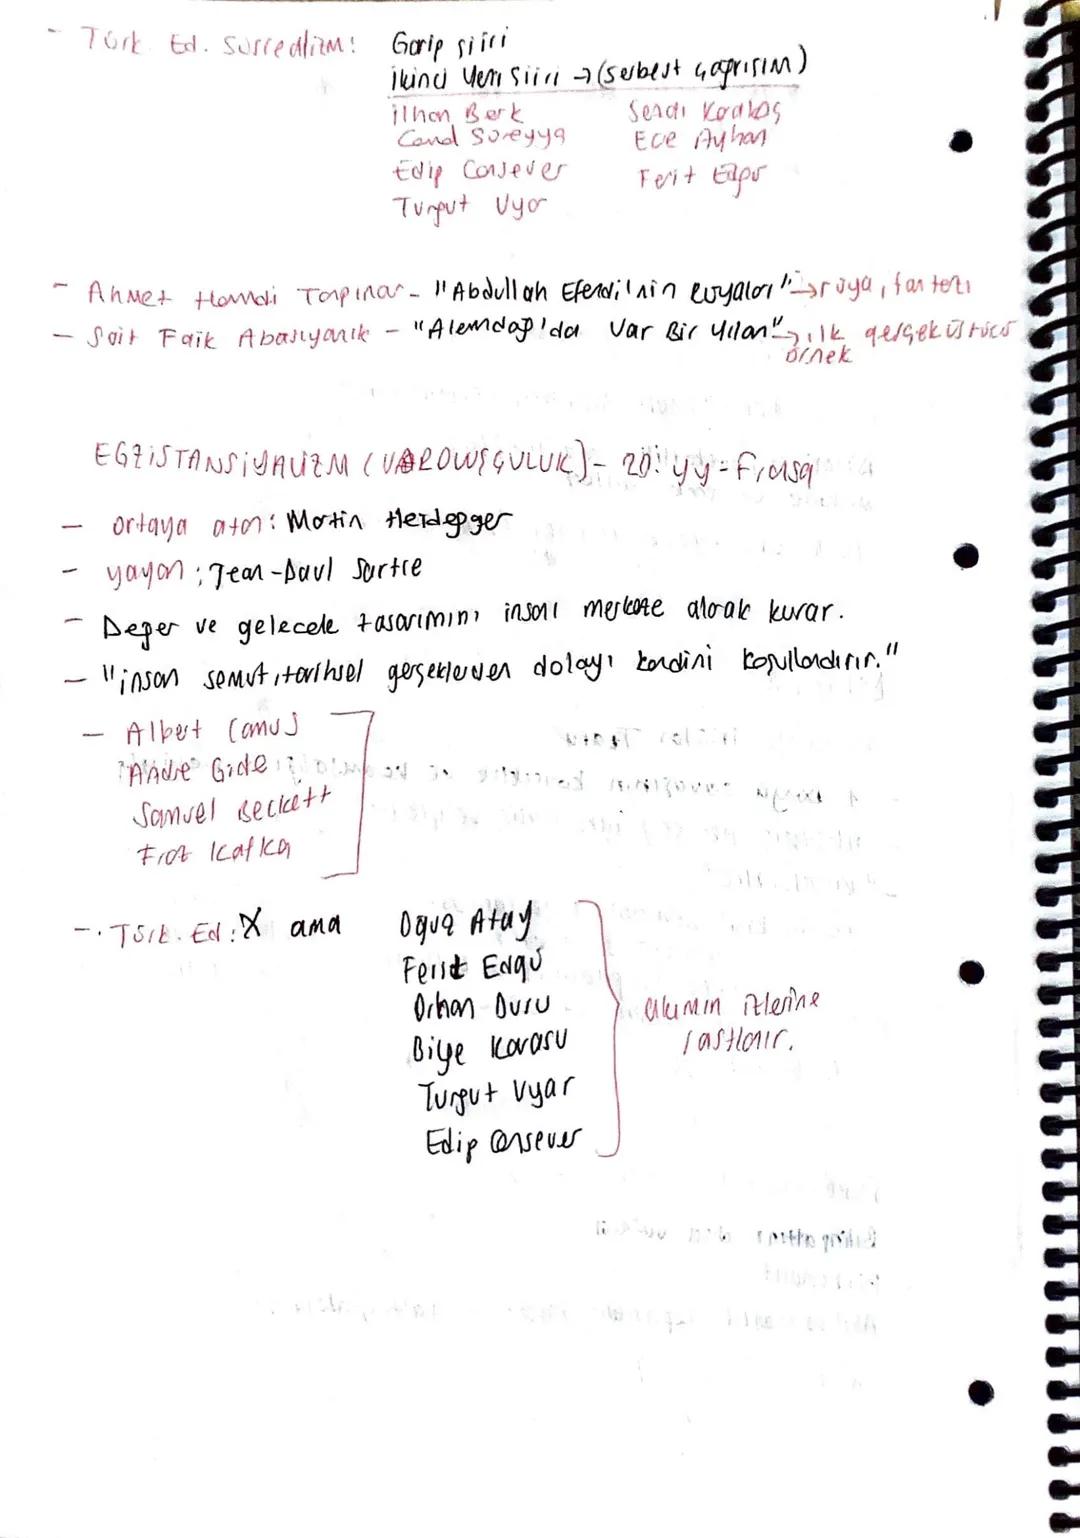 - Türk Ed. Sürrealizm: Garip şiiri
İkinci Yeni Şiiri → (serbest çağrışım)
İlhan Berk Sezai Karakoç
Cemal Süreyya Ece Ayhan
Edip Cansever Ferit Edgü
Turgut Uyar
- Ahmet Hamdi Tanpınar - "Abdullah Efendi'nin Rüyaları" → rüya, fantezi
- Sait Faik Abasıyanık - "Alemdağ'da Var Bir Yılan" → ilk gerçeküstücü
örnek
EGZİSTANSİYALİZM (VAROLUŞÇULUK) - 20. yy = Fransa
- ortaya atan: Martin Heidegger
- yayan: Jean-Paul Sartre
- Değer ve gelecek tasarımını insanı merkeze alarak kurar.
- "insan somut, tarihsel gerçeklerden dolayı kendini koşullandırır."
- Albert Camus
Andre Gide
Samuel Beckett
Franz Kafka
- Türk. Ed: X ama Oğuz Atay
Ferit Edgü
Orhan Duru
Bilge Karasu
Turgut Uyar
Edip Cansever
akımın izlerine
rastlanır.